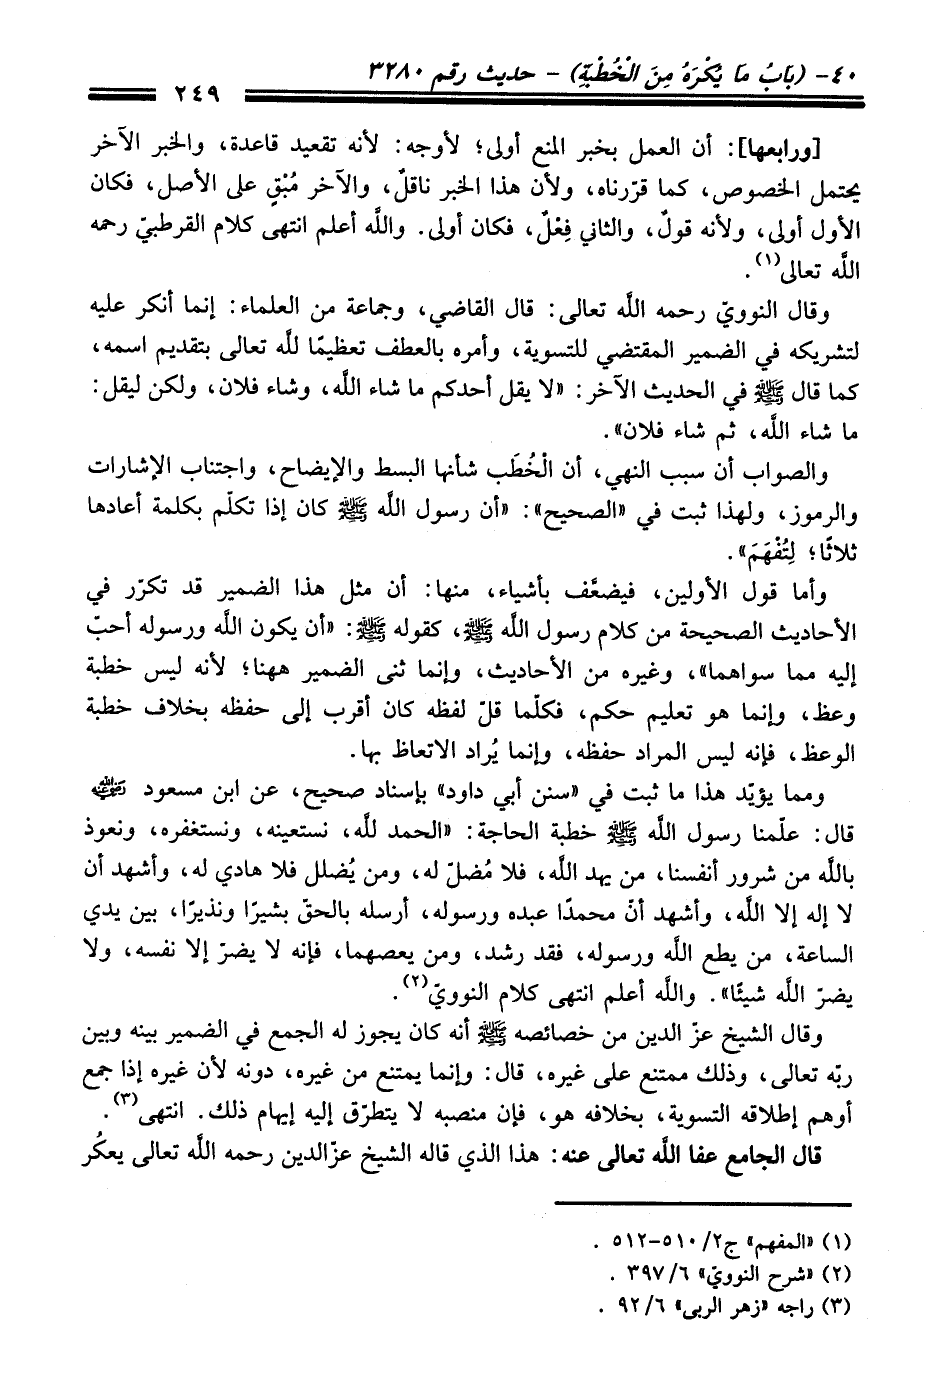 ٤٠- (بَابُ مَا يُكْرَهُ مِنَ الْخُطْبَةِ) - حديث رقم ٣٢٨٠
٢٤٩
[ورابعها]: أن العمل بخبر المنع أولى؛ لأوجه: لأنه تقعيد قاعدة، والخبر الآخر
يحتمل الخصوص، كما قرّرناه، ولأن هذا الخبر ناقلٌ، والآخر مُبْقٍ على الأصل، فكان
الأول أولى، ولأنه قولٌ، والثاني فِعْلٌ، فكان أولى. واللَّه أعلم انتهى كلام القرطبيّ رحمه
اللَّه تعالى(١).
وقال النوويّ رحمه اللَّه تعالى: قال القاضي، وجماعة من العلماء: إنما أنكر عليه
لتشريكه في الضمير المقتضي للتسوية، وأمره بالعطف تعظيمًا للَّه تعالى بتقديم اسمه،
كما قال ﷺ في الحديث الآخر: «لا يقل أحدكم ما شاء اللَّه، وشاء فلان، ولكن ليقل:
ما شاء اللَّه، ثم شاء فلان».
والصواب أن سبب النهي، أن الْخُطَب شأنها البسط والإيضاح، واجتناب الإشارات
والرموز، ولهذا ثبت في «الصحيح»: «أن رسول اللَّه ﷺ كان إذا تكلّم بكلمة أعادها
ثلاثًا؛ لِتُفْهَمَ».
وأما قول الأولين، فيضعَّف بأشياء، منها: أن مثل هذا الضمير قد تكرّر في
الأحاديث الصحيحة من كلام رسول اللَّه ﷺ، كقوله ﷺ: «أن يكون اللَّه ورسوله أحبّ
إليه مما سواهما»، وغيره من الأحاديث، وإنما ثنى الضمير ههنا؛ لأنه ليس خطبة
وعظ، وإنما هو تعليم حكم، فكلّما قلّ لفظه كان أقرب إلى حفظه بخلاف خطبة
الوعظ، فإنه ليس المراد حفظه، وإنما يُراد الاتعاظ بها.
ومما يؤيّد هذا ما ثبت في «سنن أبي داود» بإسناد صحيح، عن ابن مسعود رضي الله عنه
قال: علّمنا رسول اللَّه ﷺ خطبة الحاجة: «الحمد للَّه، نستعينه، ونستغفره، ونعوذ
باللَّه من شرور أنفسنا، من يهد اللَّه، فلا مُضلّ له، ومن يُضلل فلا هادي له، وأشهد أن
لا إله إلا اللَّه، وأشهد أنّ محمدًا عبده ورسوله، أرسله بالحقّ بشيرًا ونذيرًا، بين يدي
الساعة، من يطع اللَّه ورسوله، فقد رشد، ومن يعصهما، فإنه لا يضرّ إلا نفسه، ولا
يضرّ اللَّه شيئًا». واللَّه أعلم انتهى كلام النوويّ(٢).
وقال الشيخ عزّ الدين من خصائصه ﷺ أنه كان يجوز له الجمع في الضمير بينه وبين
ربّه تعالى، وذلك ممتنع على غيره، قال: وإنما يمتنع من غيره، دونه لأن غيره إذا جمع
أوهم إطلاقه التسوية، بخلافه هو، فإن منصبه لا يتطرّق إليه إيهام ذلك. انتهى(٣).
قال الجامع عفا اللَّه تعالى عنه: هذا الذي قاله الشيخ عزّالدين رحمه اللَّه تعالى يعكُر
(١) «المفهم» ج٢/ ٥١٠-٥١٢ .
(٢) «شرح النوويّ» ٦/ ٣٩٧ .
(٣) راجه «زهر الربى» ٦/ ٩٢ .